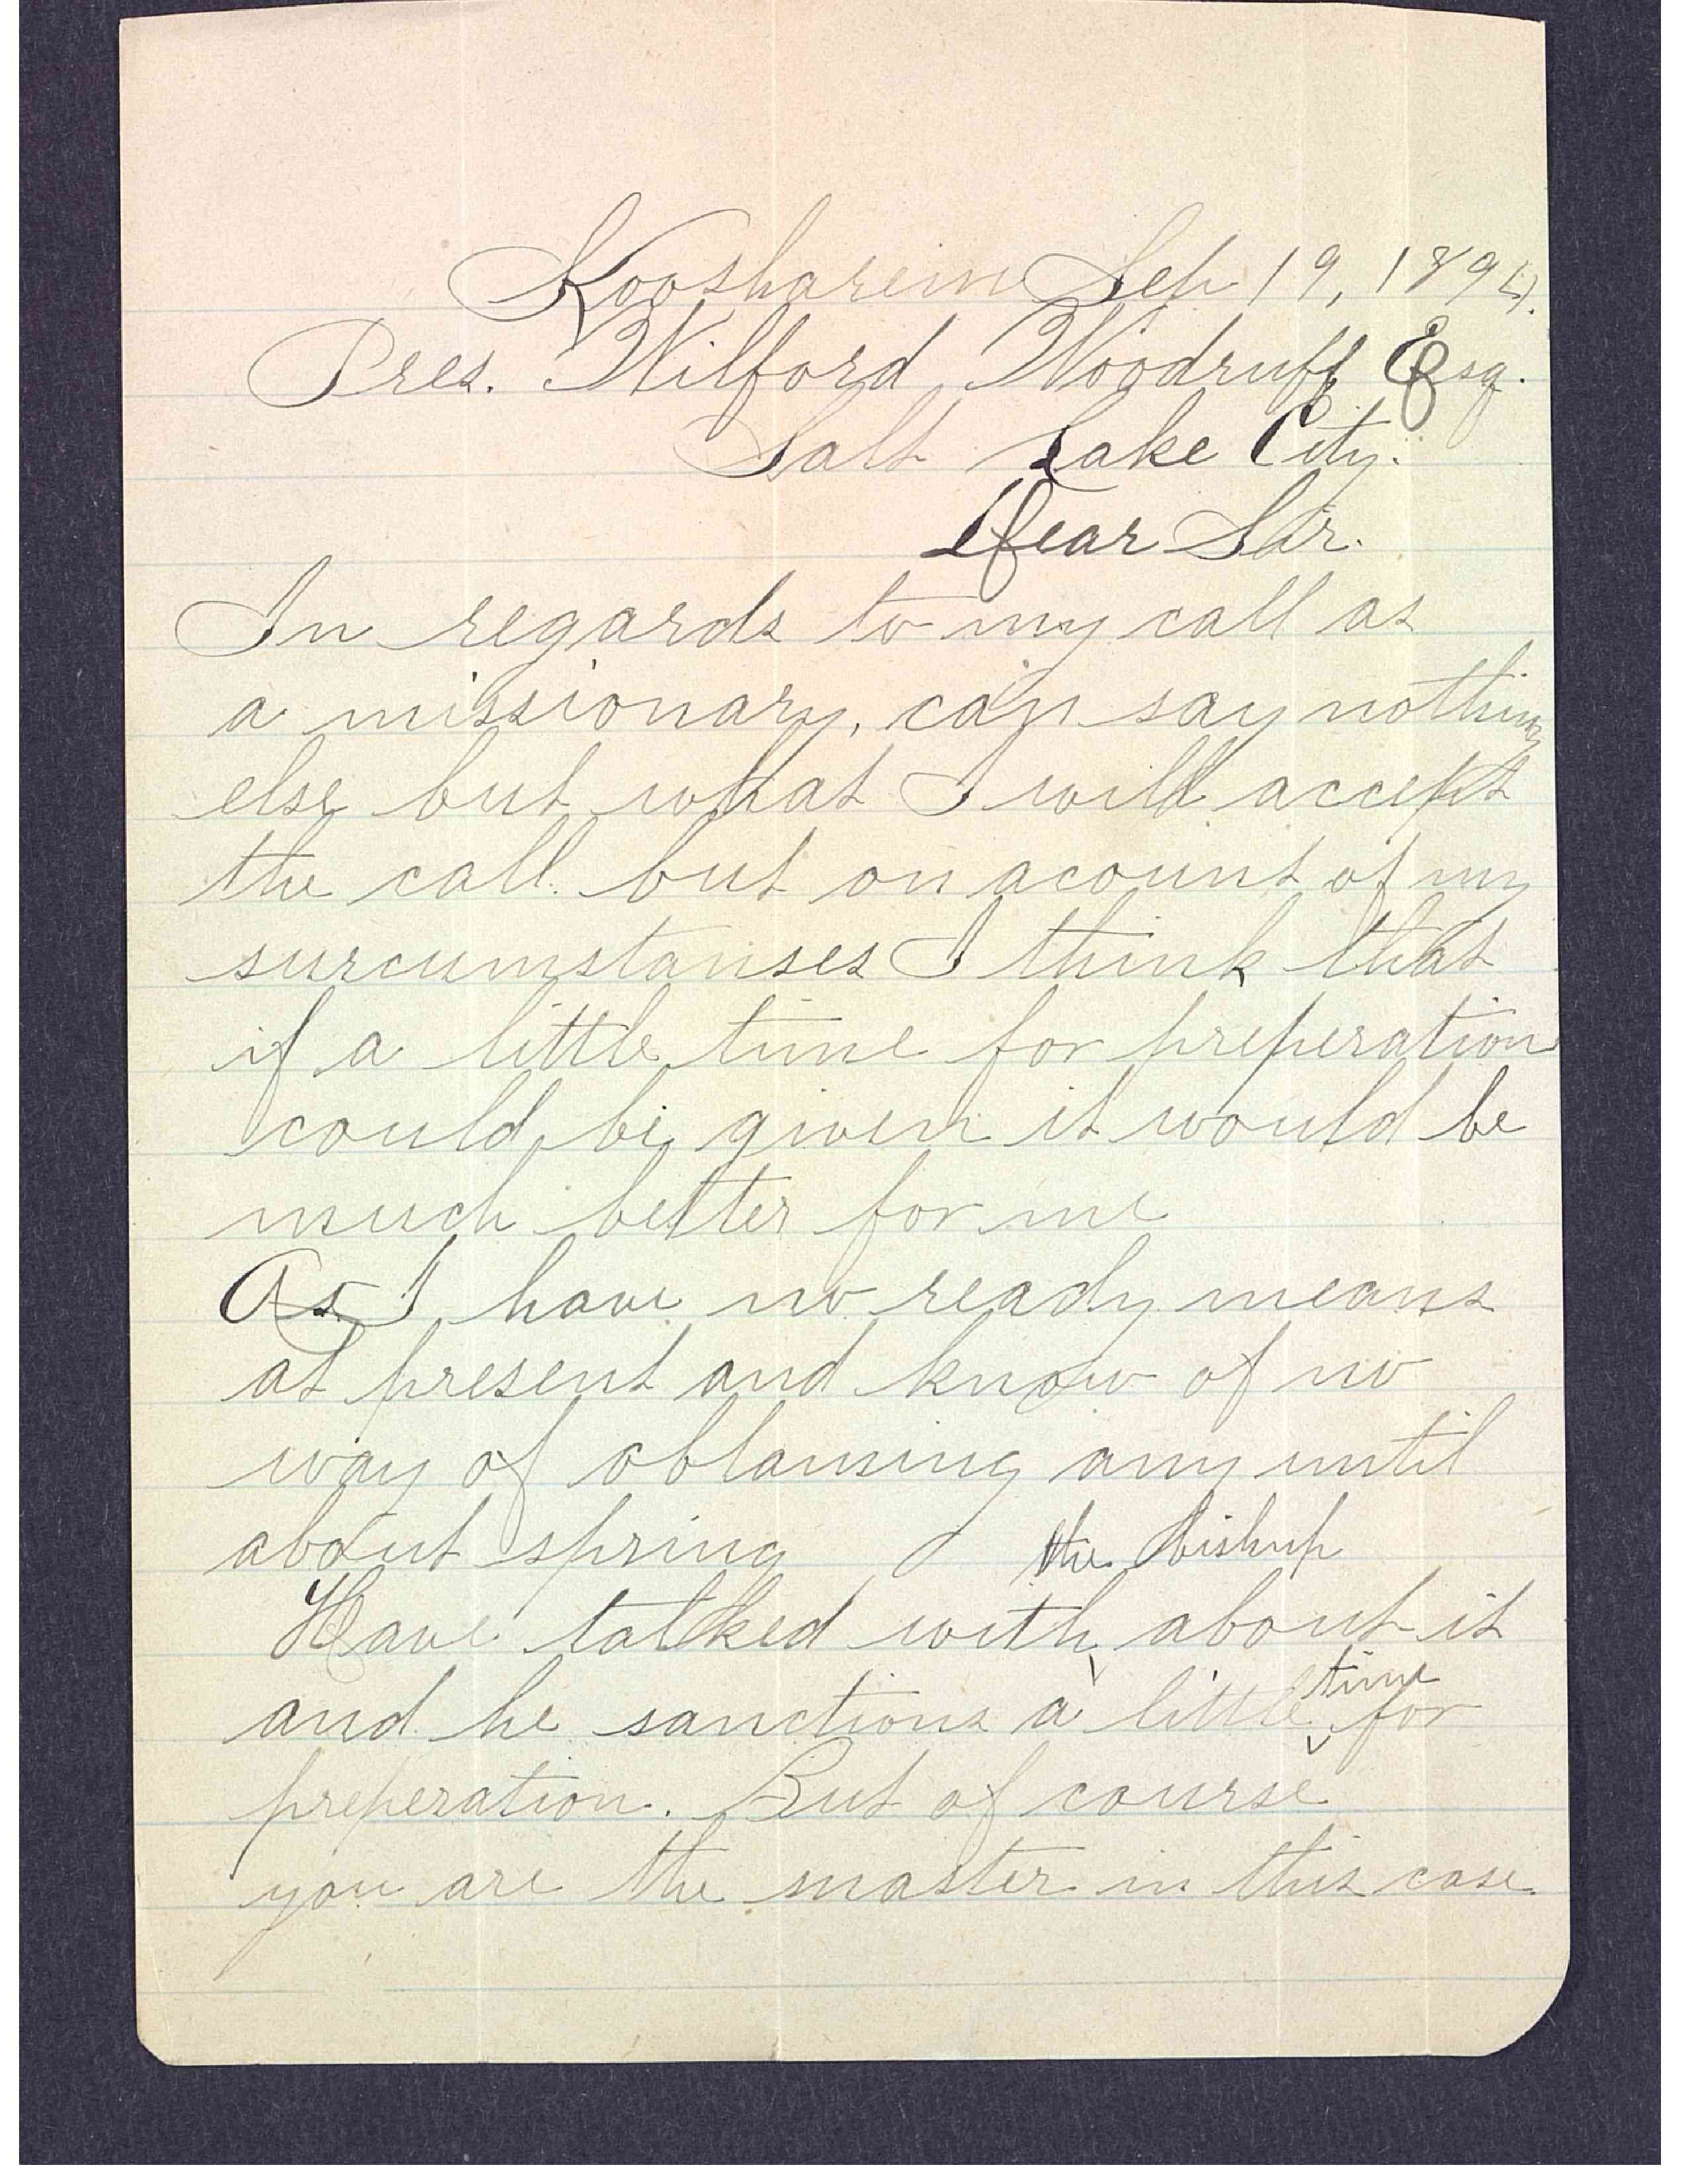 Koosharem Sep 19, 1894.
Pres. Wilford Woodruff Esq.
Salt Lake City.
Dear Sir.
In regards to my call as
a missionary, can say nothing
else but what I will accept
the call. but on acount of my
surcumstanses I think that
if a little time for preperation
could be given it would be
much better for me
As I have no ready means
at present and know of no
way of obtaining any until
about spring
the bishop
Have talked with about it
time
and he sanctions a little for
preperation. But of course
you are the master in this case.